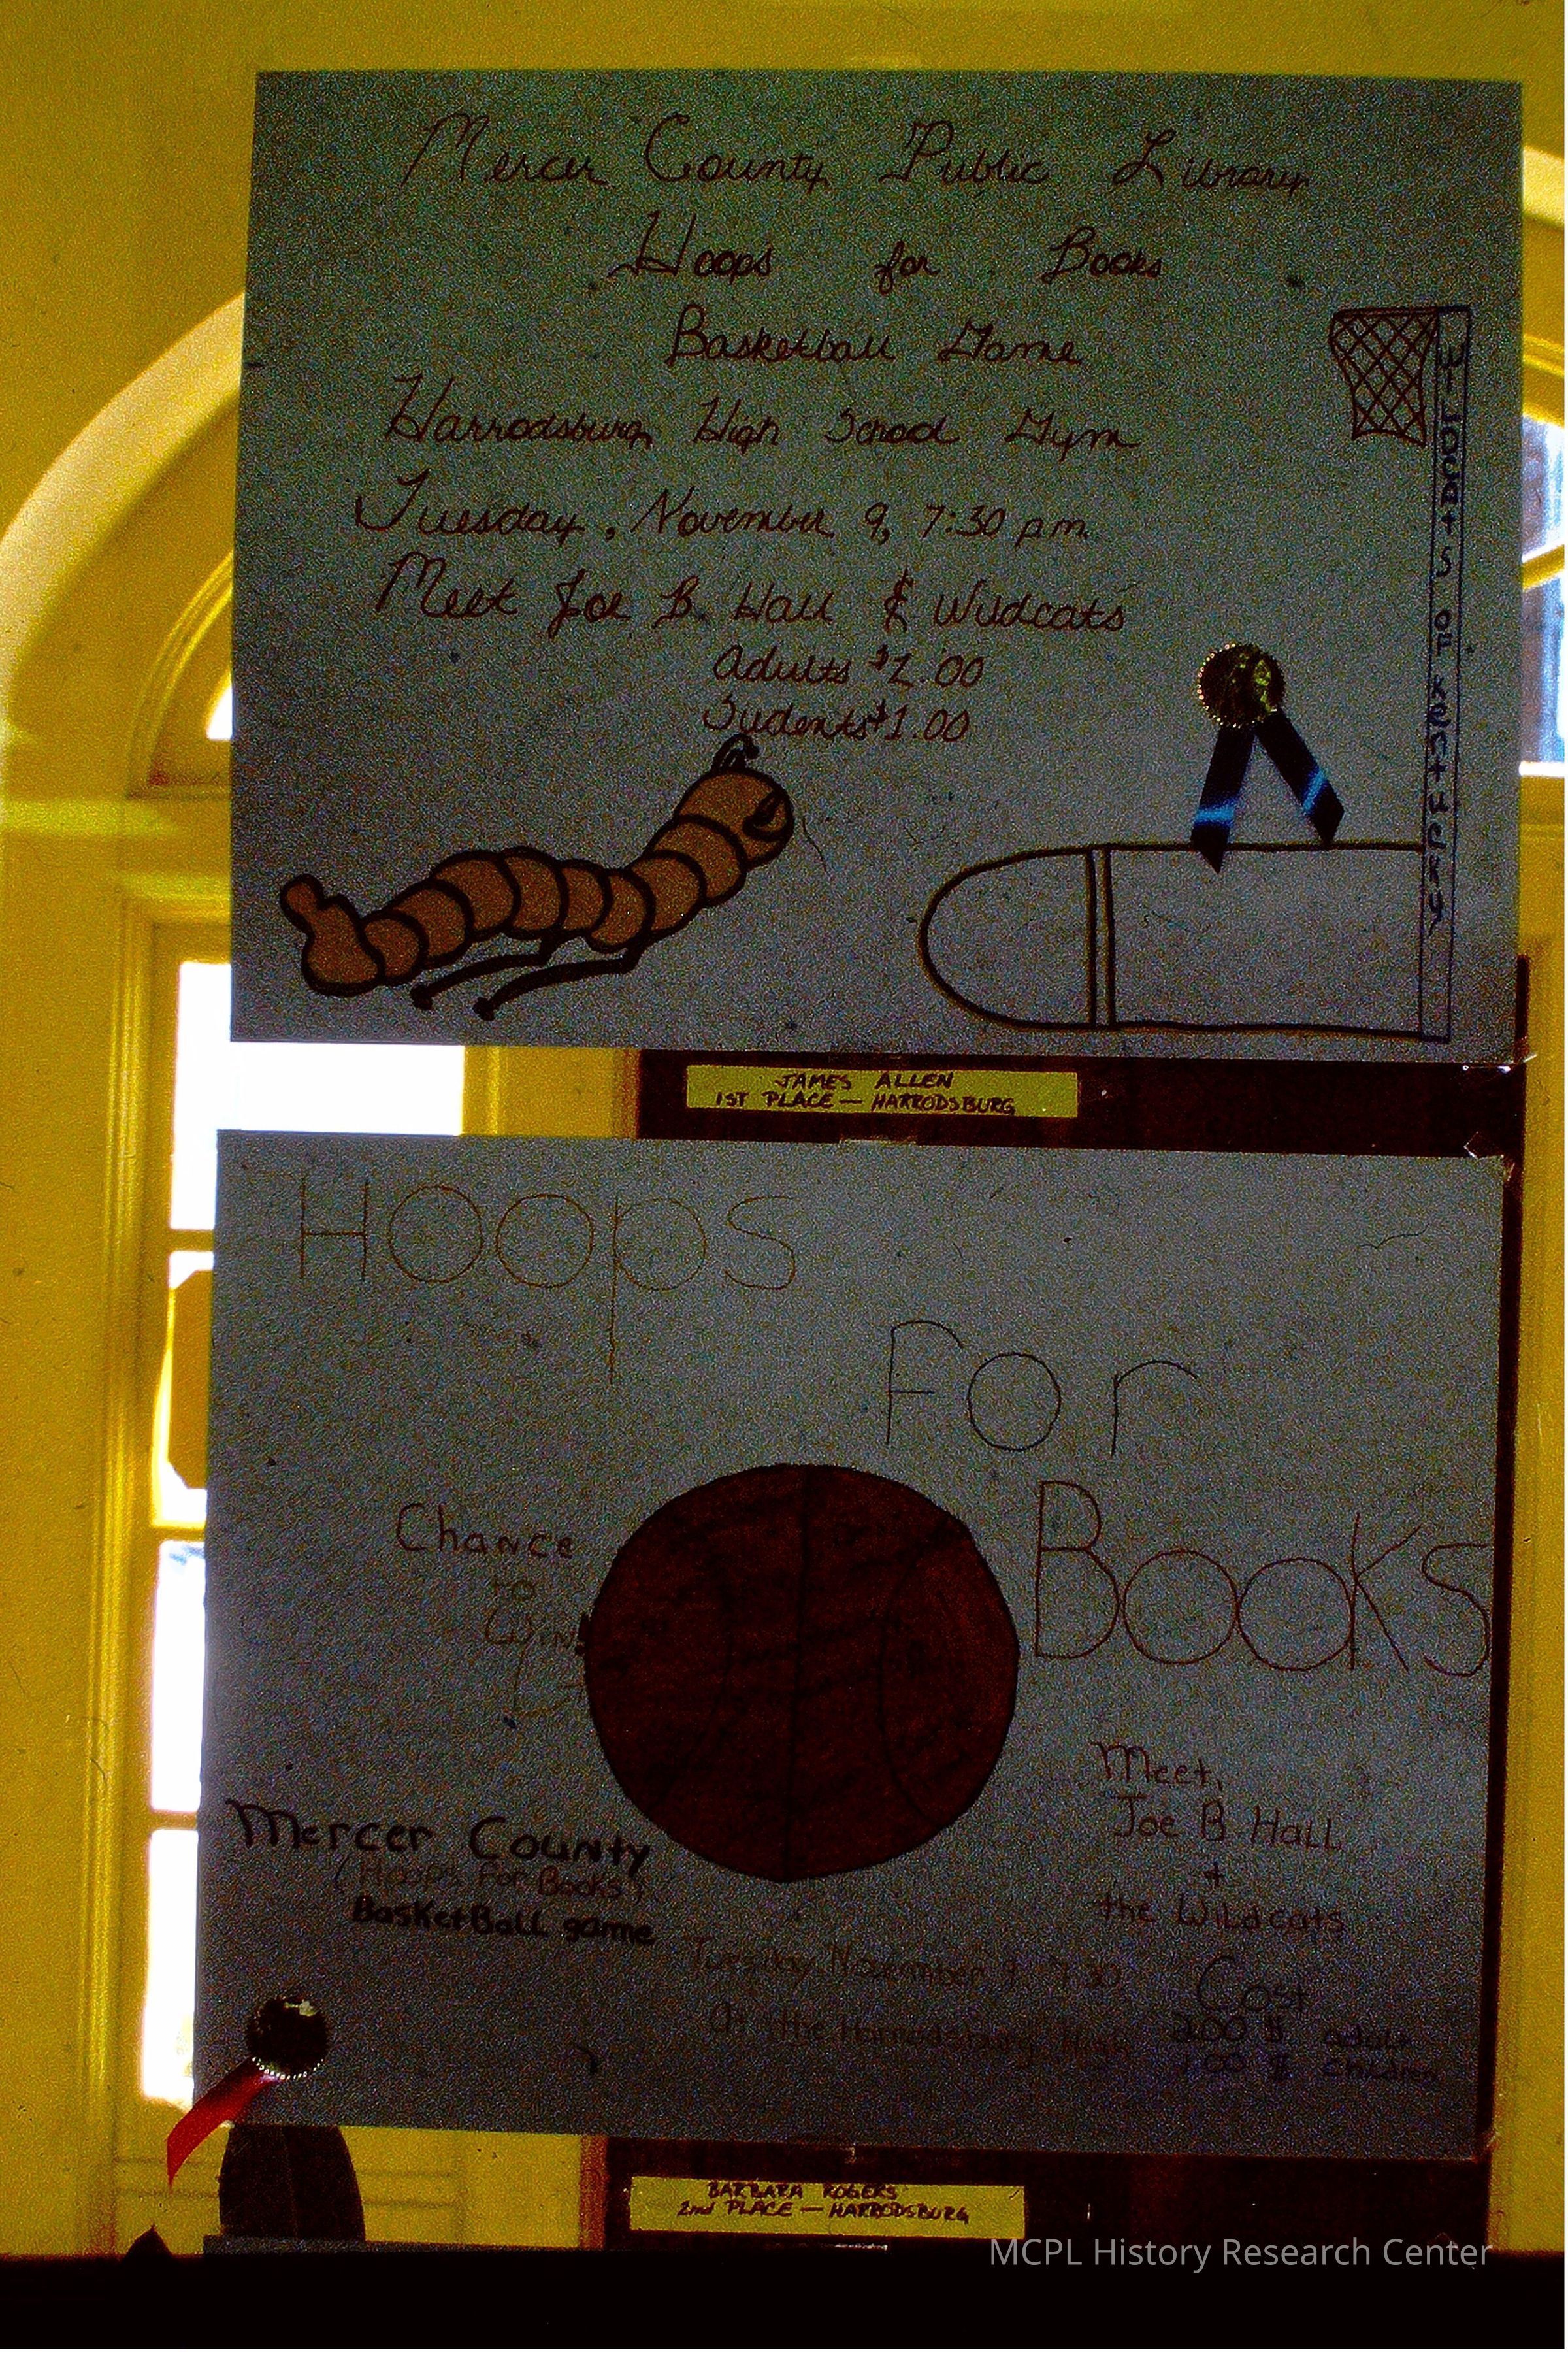 Mercer County Public Library
Hoops for Books
Basketball Game
Harrodsburg High School Gym
Tuesday, November 9, 7:30 p.m.
Meet Joe B. Hall & Wildcats
Adults $2.00
Sudents $1.00
JAMES ALLEN
1ST PLACE — HARRODSBURG
Hoops
For
Books
Chance
to
Win!
Meet,
Joe B. Hall
+
the Wildcats
Mercer County
(Hoops For Books)
BasketBall game
Tuesday, November 9, 7:30
At the Harrodsburg High
Cost
200 $ adult
100 $ children
BARBARA ROGERS
2nd PLACE — HARRODSBURG
MCPL History Research Center